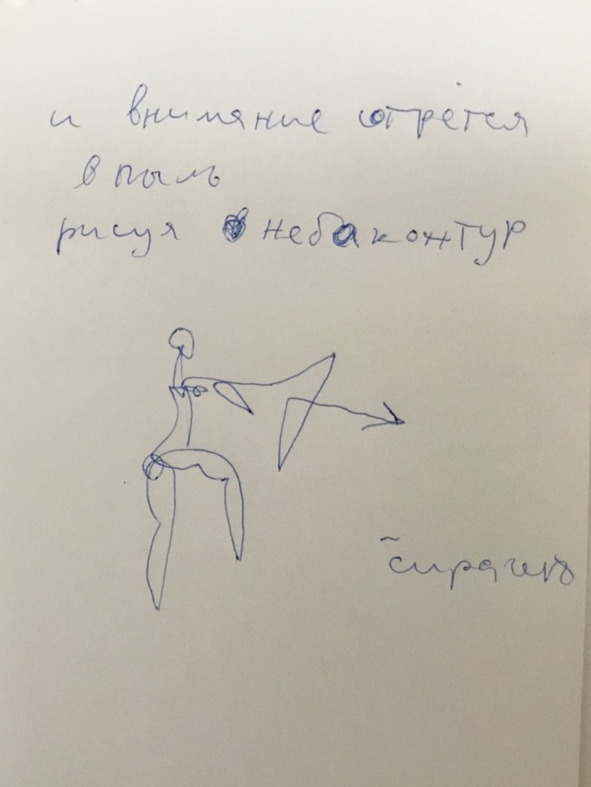 и внимание отрётся
в пыль
рисуя неба контур